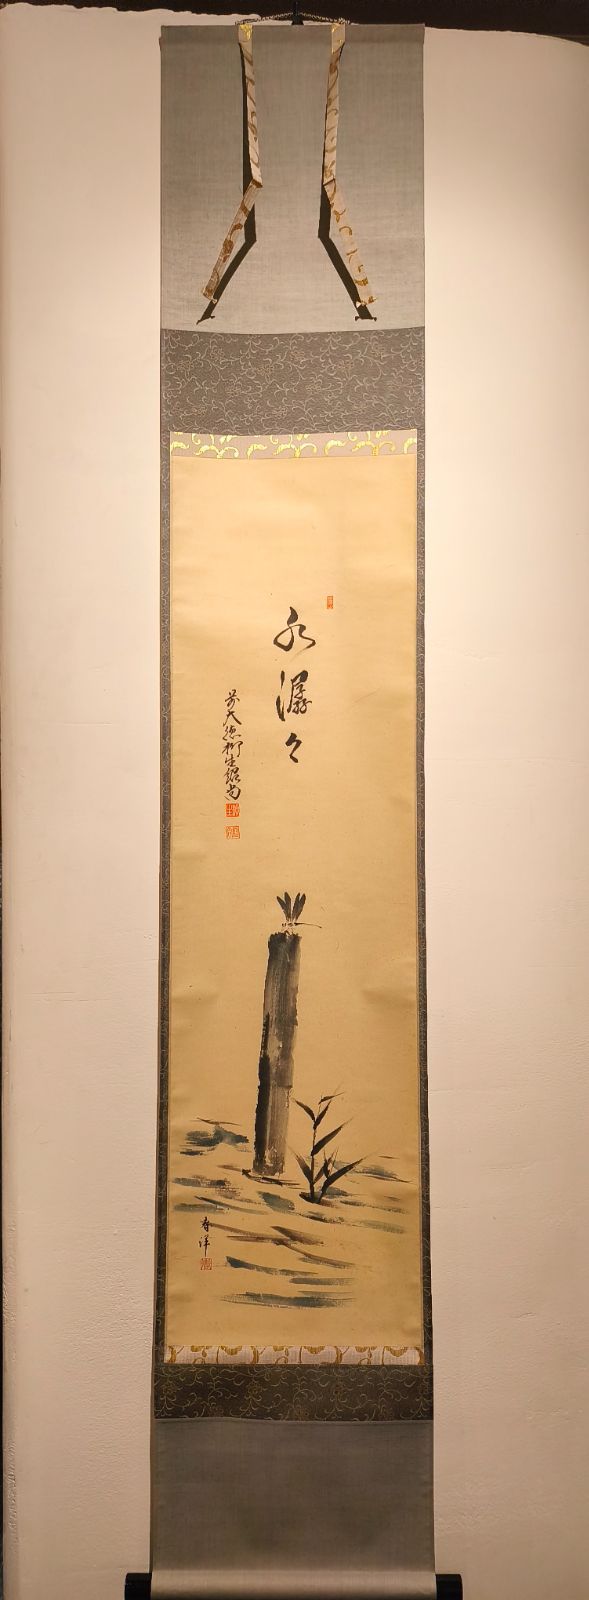 水潺々
前大徳柳生紹尚
春洋